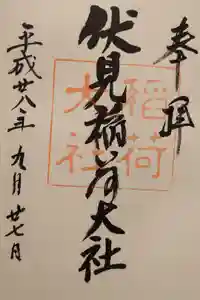 奉拝
伏見稲荷大社
稲荷
大社
平成廿八年九月廿七日